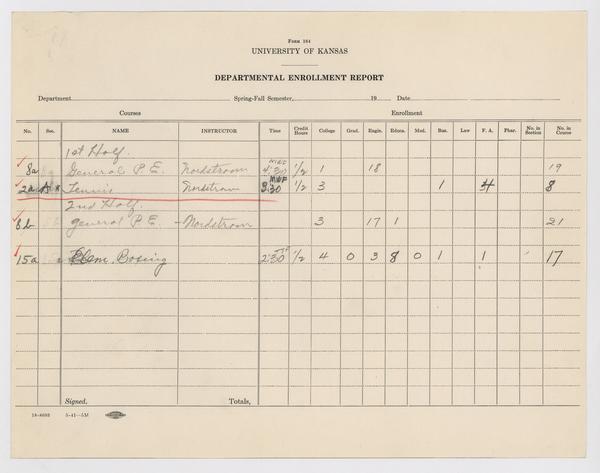 Form 164
UNIVERSITY OF KANSAS
DEPARTMENTAL ENROLLMENT REPORT
Department Spring-Fall Semester, 19 Date
Courses Enrollment
No. Sec. NAME INSTRUCTOR Time Credit Hours College Grad. Engin. Educa. Med. Bus. Law F. A. Phar. No. in Section No. in Course
1st Half.
8a General P.E. Nordstrom MWF 4:30 1/2 1 18 19
2a Tennis Nordstrom MWF 3:30 1/2 3 1 4 8
2nd Half.
8b General P.E. - Nordstrom 3 17 1 21
15a Elem. Boxing 2:30 1/2 4 0 3 8 0 1 1 17
Signed, Totals,
18-8693 5-41-5M